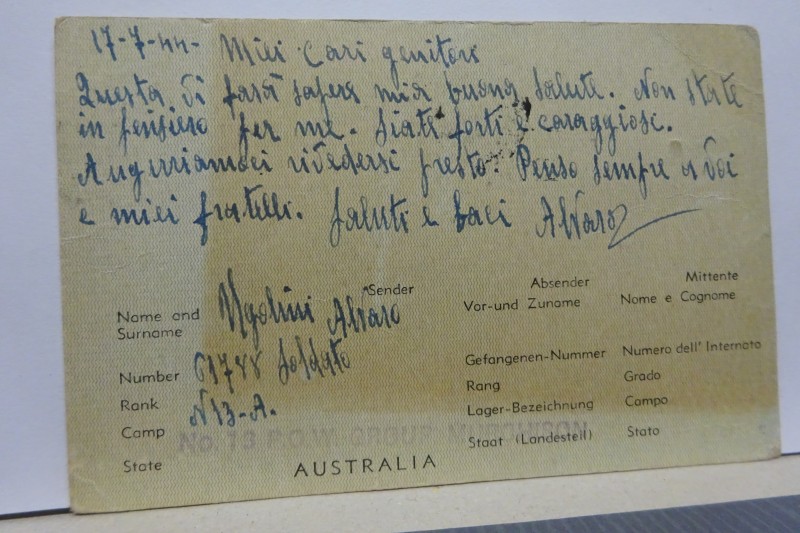 17-7-44- Miei Cari genitori
Questa vi farà sapere mia buona salute. Non state
in pensiero per me. Siate forti e coraggiosi.
Auguriamoci rivedersi presto. Penso sempre a voi
e miei fratelli. Saluti e baci Alvaro
Sender Absender Mittente
Name and Surname Ugolini Alvaro Vor-und Zuname Nome e Cognome
Number 61788 Soldato Gefangenen-Nummer Numero dell' Internato
Rank Rang Grado
Camp N13-A. Lager-Bezeichnung Campo
No. 13 P.O.W. GROUP MURCHISON
State AUSTRALIA Staat (Landesteil) Stato